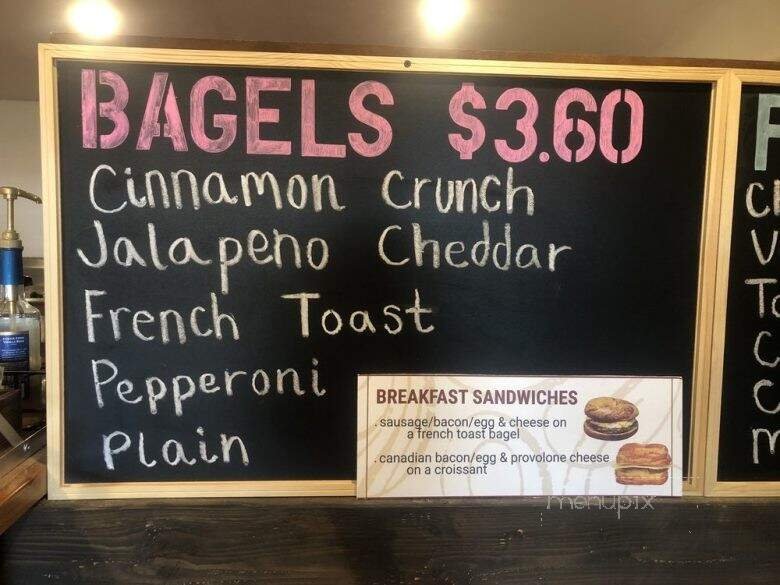 BAGELS $3.60
Cinnamon Crunch
Jalapeno Cheddar
French Toast
Pepperoni
Plain
BREAKFAST SANDWICHES
. sausage/bacon/egg & cheese on
a french toast bagel
. canadian bacon/egg & provolone cheese
on a croissant
menupix